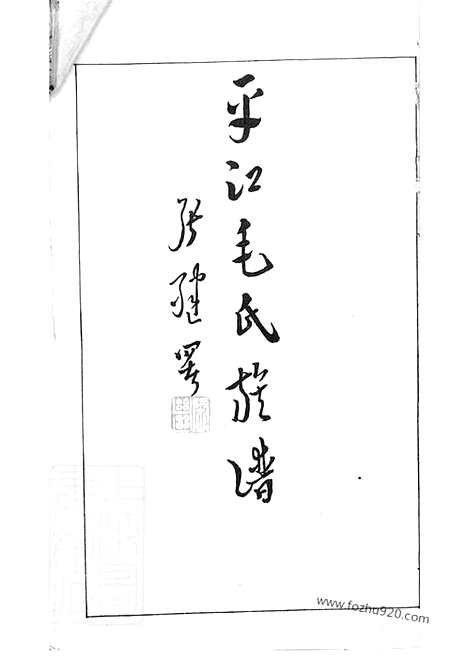 平江毛氏族譜
張翼署
www.fozhu920.com